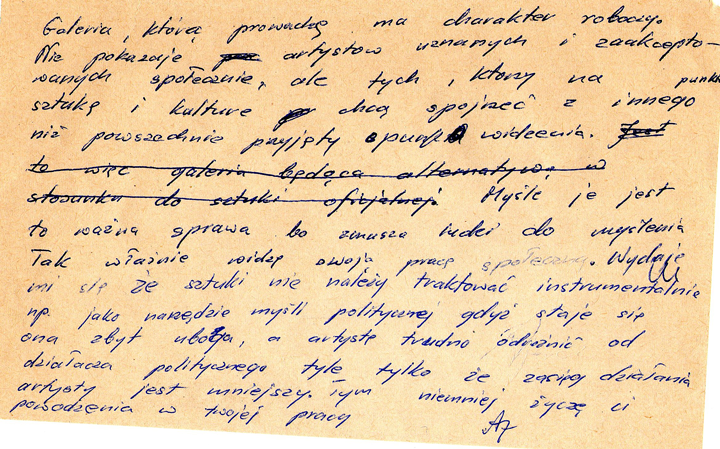 Galeria, którą prowadzę ma charakter roboczy.
Nie pokazuje artystów uznanych i zaakcepto-
wanych społecznie, ale tych, którzy na
sztukę i kulturę chcą spojrzeć z innego
niż powszechnie przyjęty punktu widzenia. Jest
to więc galeria będąca alternatywą w
stosunku do sztuki oficjalnej. Myślę je jest
to ważna sprawa bo zmusza ludzi do myślenia
Tak właśnie widzę swoją pracę społeczną. Wydaje
mi się że sztuki nie należy traktować instrumentalnie
np. jako narzędzie myśli politycznej gdyż staje się
ona zbyt uboga, a artystę trudno odróżnić od
działacza politycznego tyle tylko że zasięg działania
artysty jest mniejszy. Tym niemniej życzę ci
powodzenia w twojej pracy